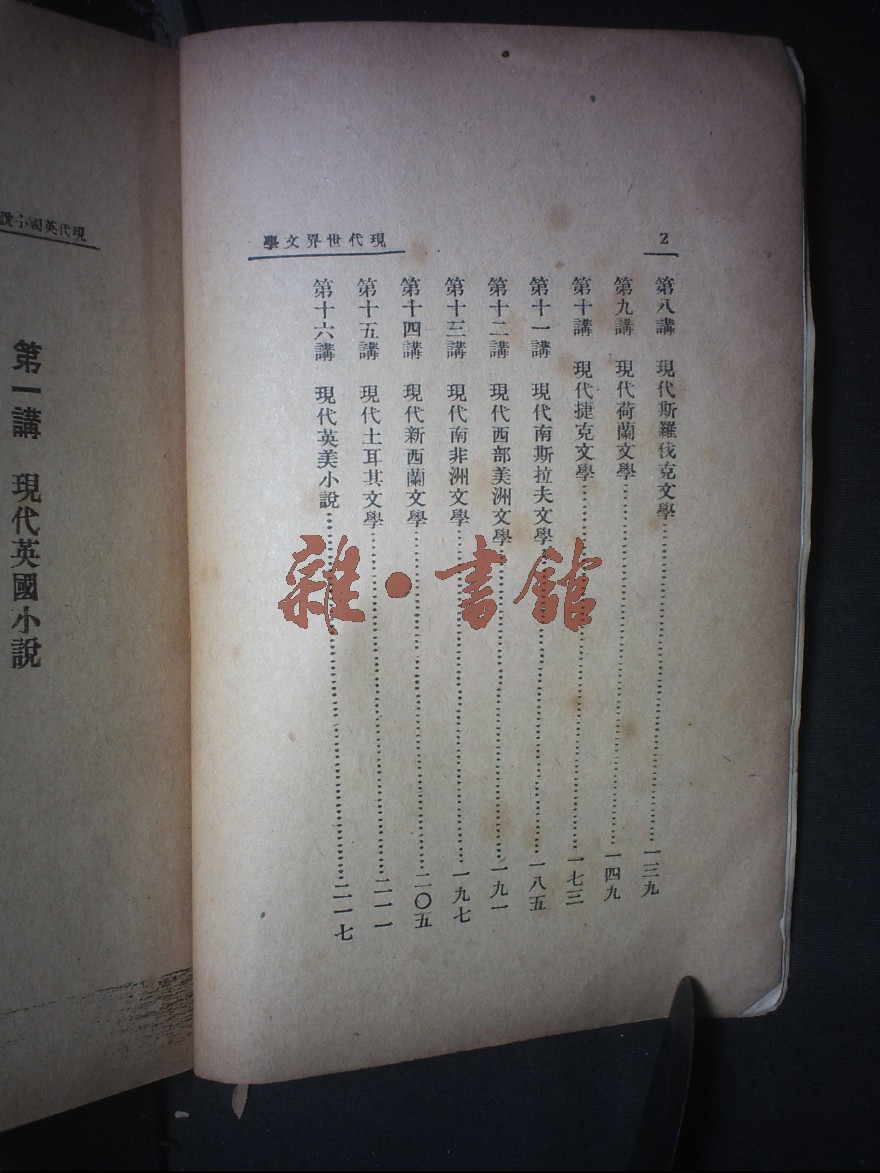 2
現代世界文學
第八講 現代斯羅伐克文學……一三九
第九講 現代荷蘭文學……一四九
第十講 現代捷克文學……一七三
第十一講 現代南斯拉夫文學……一八五
第十二講 現代西部美洲文學……一九一
第十三講 現代南非洲文學……一九七
第十四講 現代新西蘭文學……二〇五
第十五講 現代土耳其文學……二一一
第十六講 現代英美小說……二一七
雜·書館
現代英國小說
第一講 現代英國小說